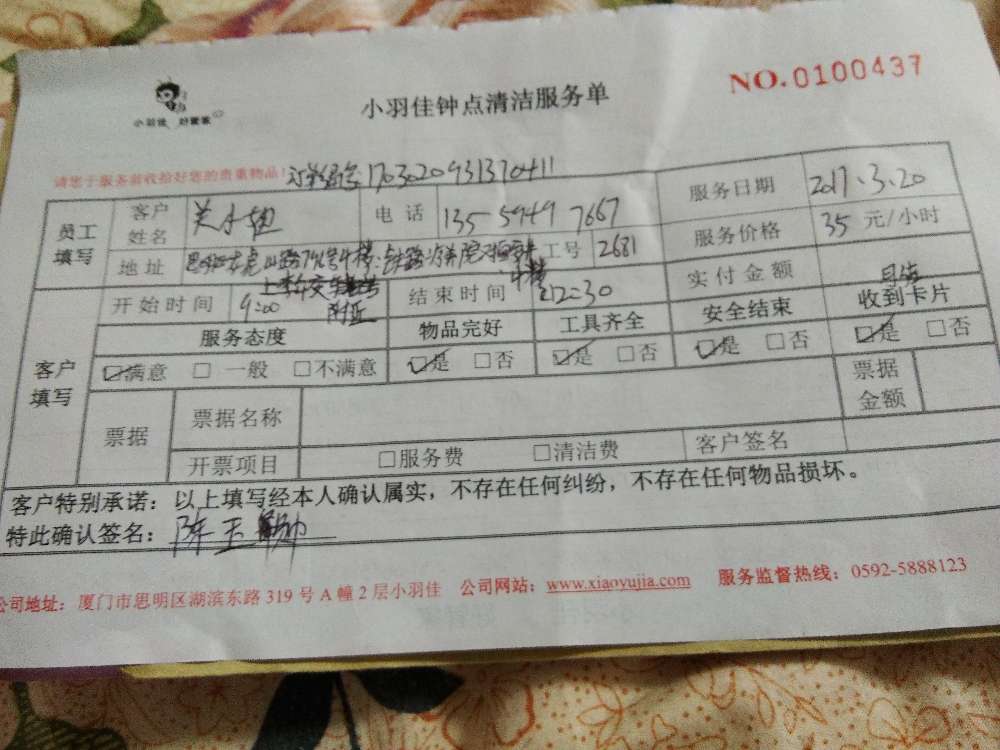 小羽佳 好管家
小羽佳钟点清洁服务单
NO.0100437
请您于服务前收拾好您的贵重物品! 订单编号: 17032093137041​1
员工填写 客户姓名 关小姐 电话 135 5949 7667 服务日期 2017.3.20
地址 工号 2681 服务价格 35 元/小时
附近
开始时间 9:00 结束时间 12:30 实付金额 月结
客户填写 服务态度 物品完好 工具齐全 安全结束 收到卡片
满意 一般 不满意 是 否 是 否 是 否 是 否
票据 票据名称 票据金额
开票项目 服务费 清洁费 客户签名
客户特别承诺:以上填写经本人确认属实,不存在任何纠纷,不存在任何物品损坏。
特此确认签名:陈玉
公司地址:厦门市思明区湖滨东路 319 号 A 幢 2 层小羽佳 公司网站:www.xiaoyujia.com 服务监督热线:0592-5888123